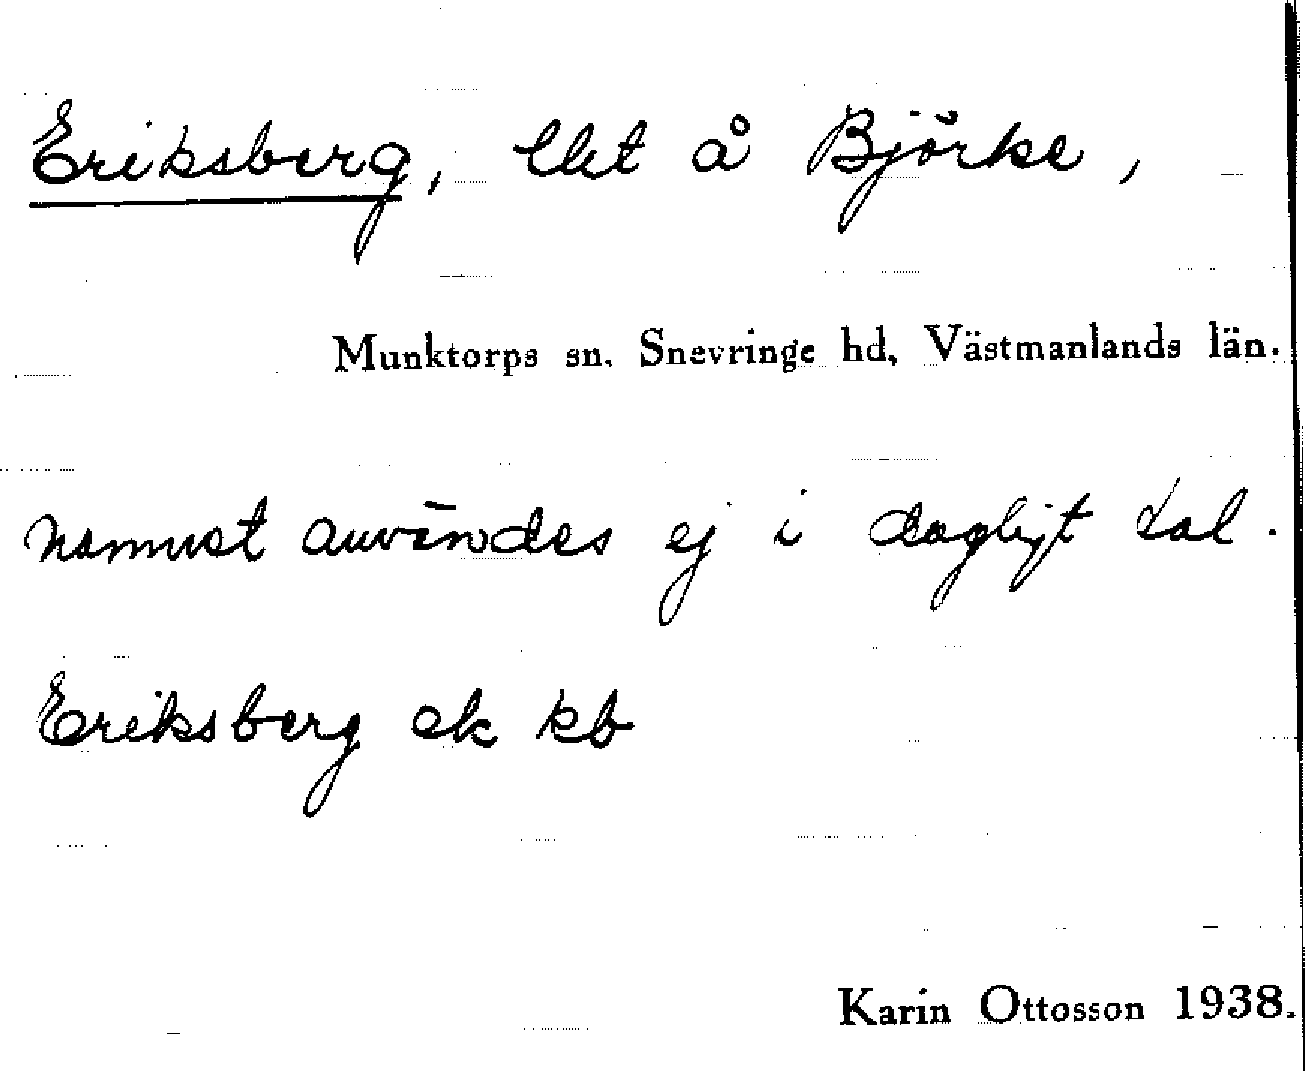 Eriksberg, lht å Björke,
Munktorps sn. Snevringe hd, Västmanlands län.
namnet användes ej i dagligt tal.
Eriksberg ek kb
Karin Ottosson 1938.